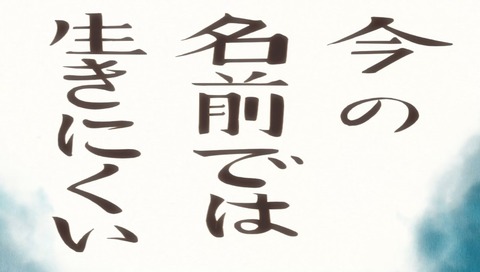 今の
名前では
生きにくい